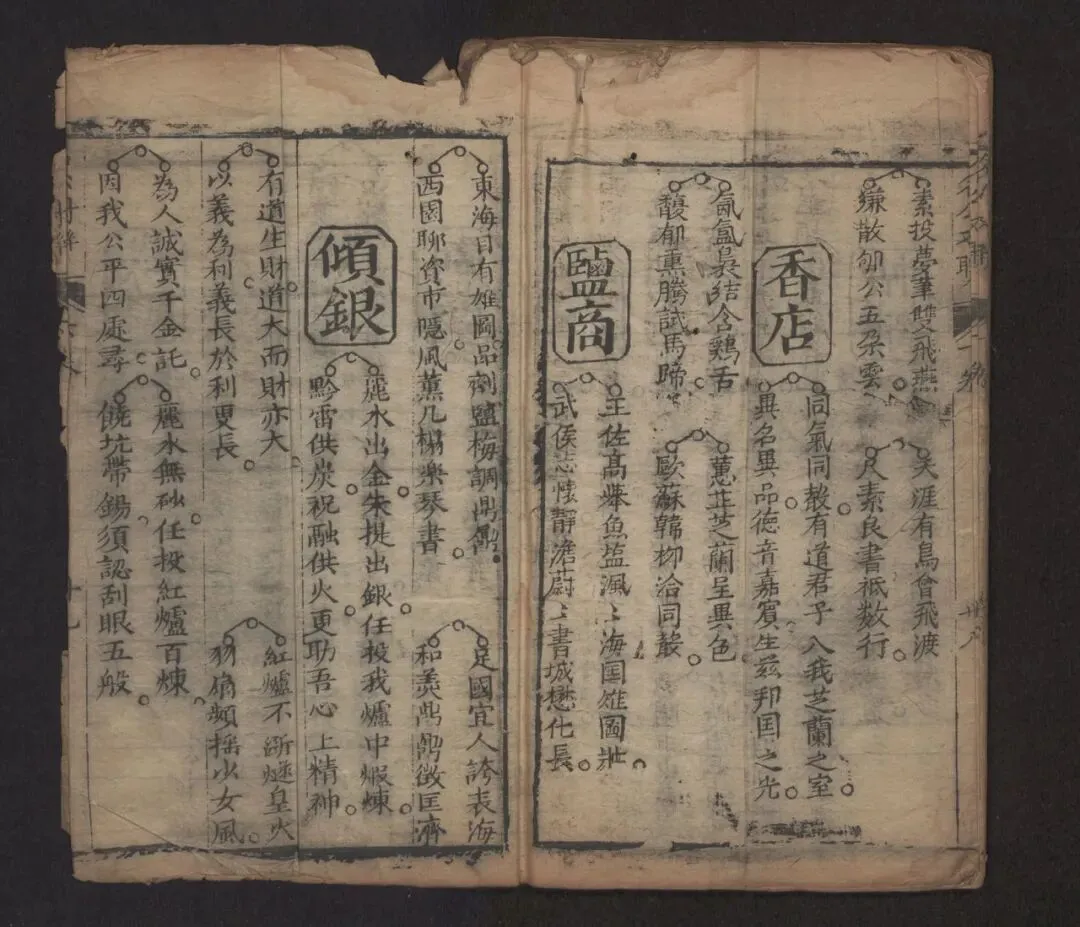 素投夢筆雙飛燕
縑散郇公五朵雲
天涯有鳥曾飛渡
尺素良書祗数行
香店
同氣同殸有道君子入我芝蘭之室
異名異品德音嘉賓生茲邦国之光
氤氳裊結含鷄舌
馥郁熏騰試馬蹄
蕙芷芝蘭呈異色
歐蘇韓柳洽同
鹽商
王佐高魚塩渢〻海国雄圖壯
武侯志懷靜澹蔚〻書城懋化長
東海日有雄圖品劑鹽梅調鼎鼐
西園聊資市隱風薰几榻樂琴書
足國宜人誇表海
和羮鼎鼐徵匡濟
傾銀
麗水出金朱提出銀任投我爐中煅煉
黔雷供炭祝融供火更助吾心上精神
有道生財道大而財亦大
以義為利義長於利更長
紅爐不斷燧皇火
羽扇頻揺少女風
為人誠實千金託
因我公平四處尋
麗水無砂任投紅爐百煉
饒坑帶錫須認刮眼五般